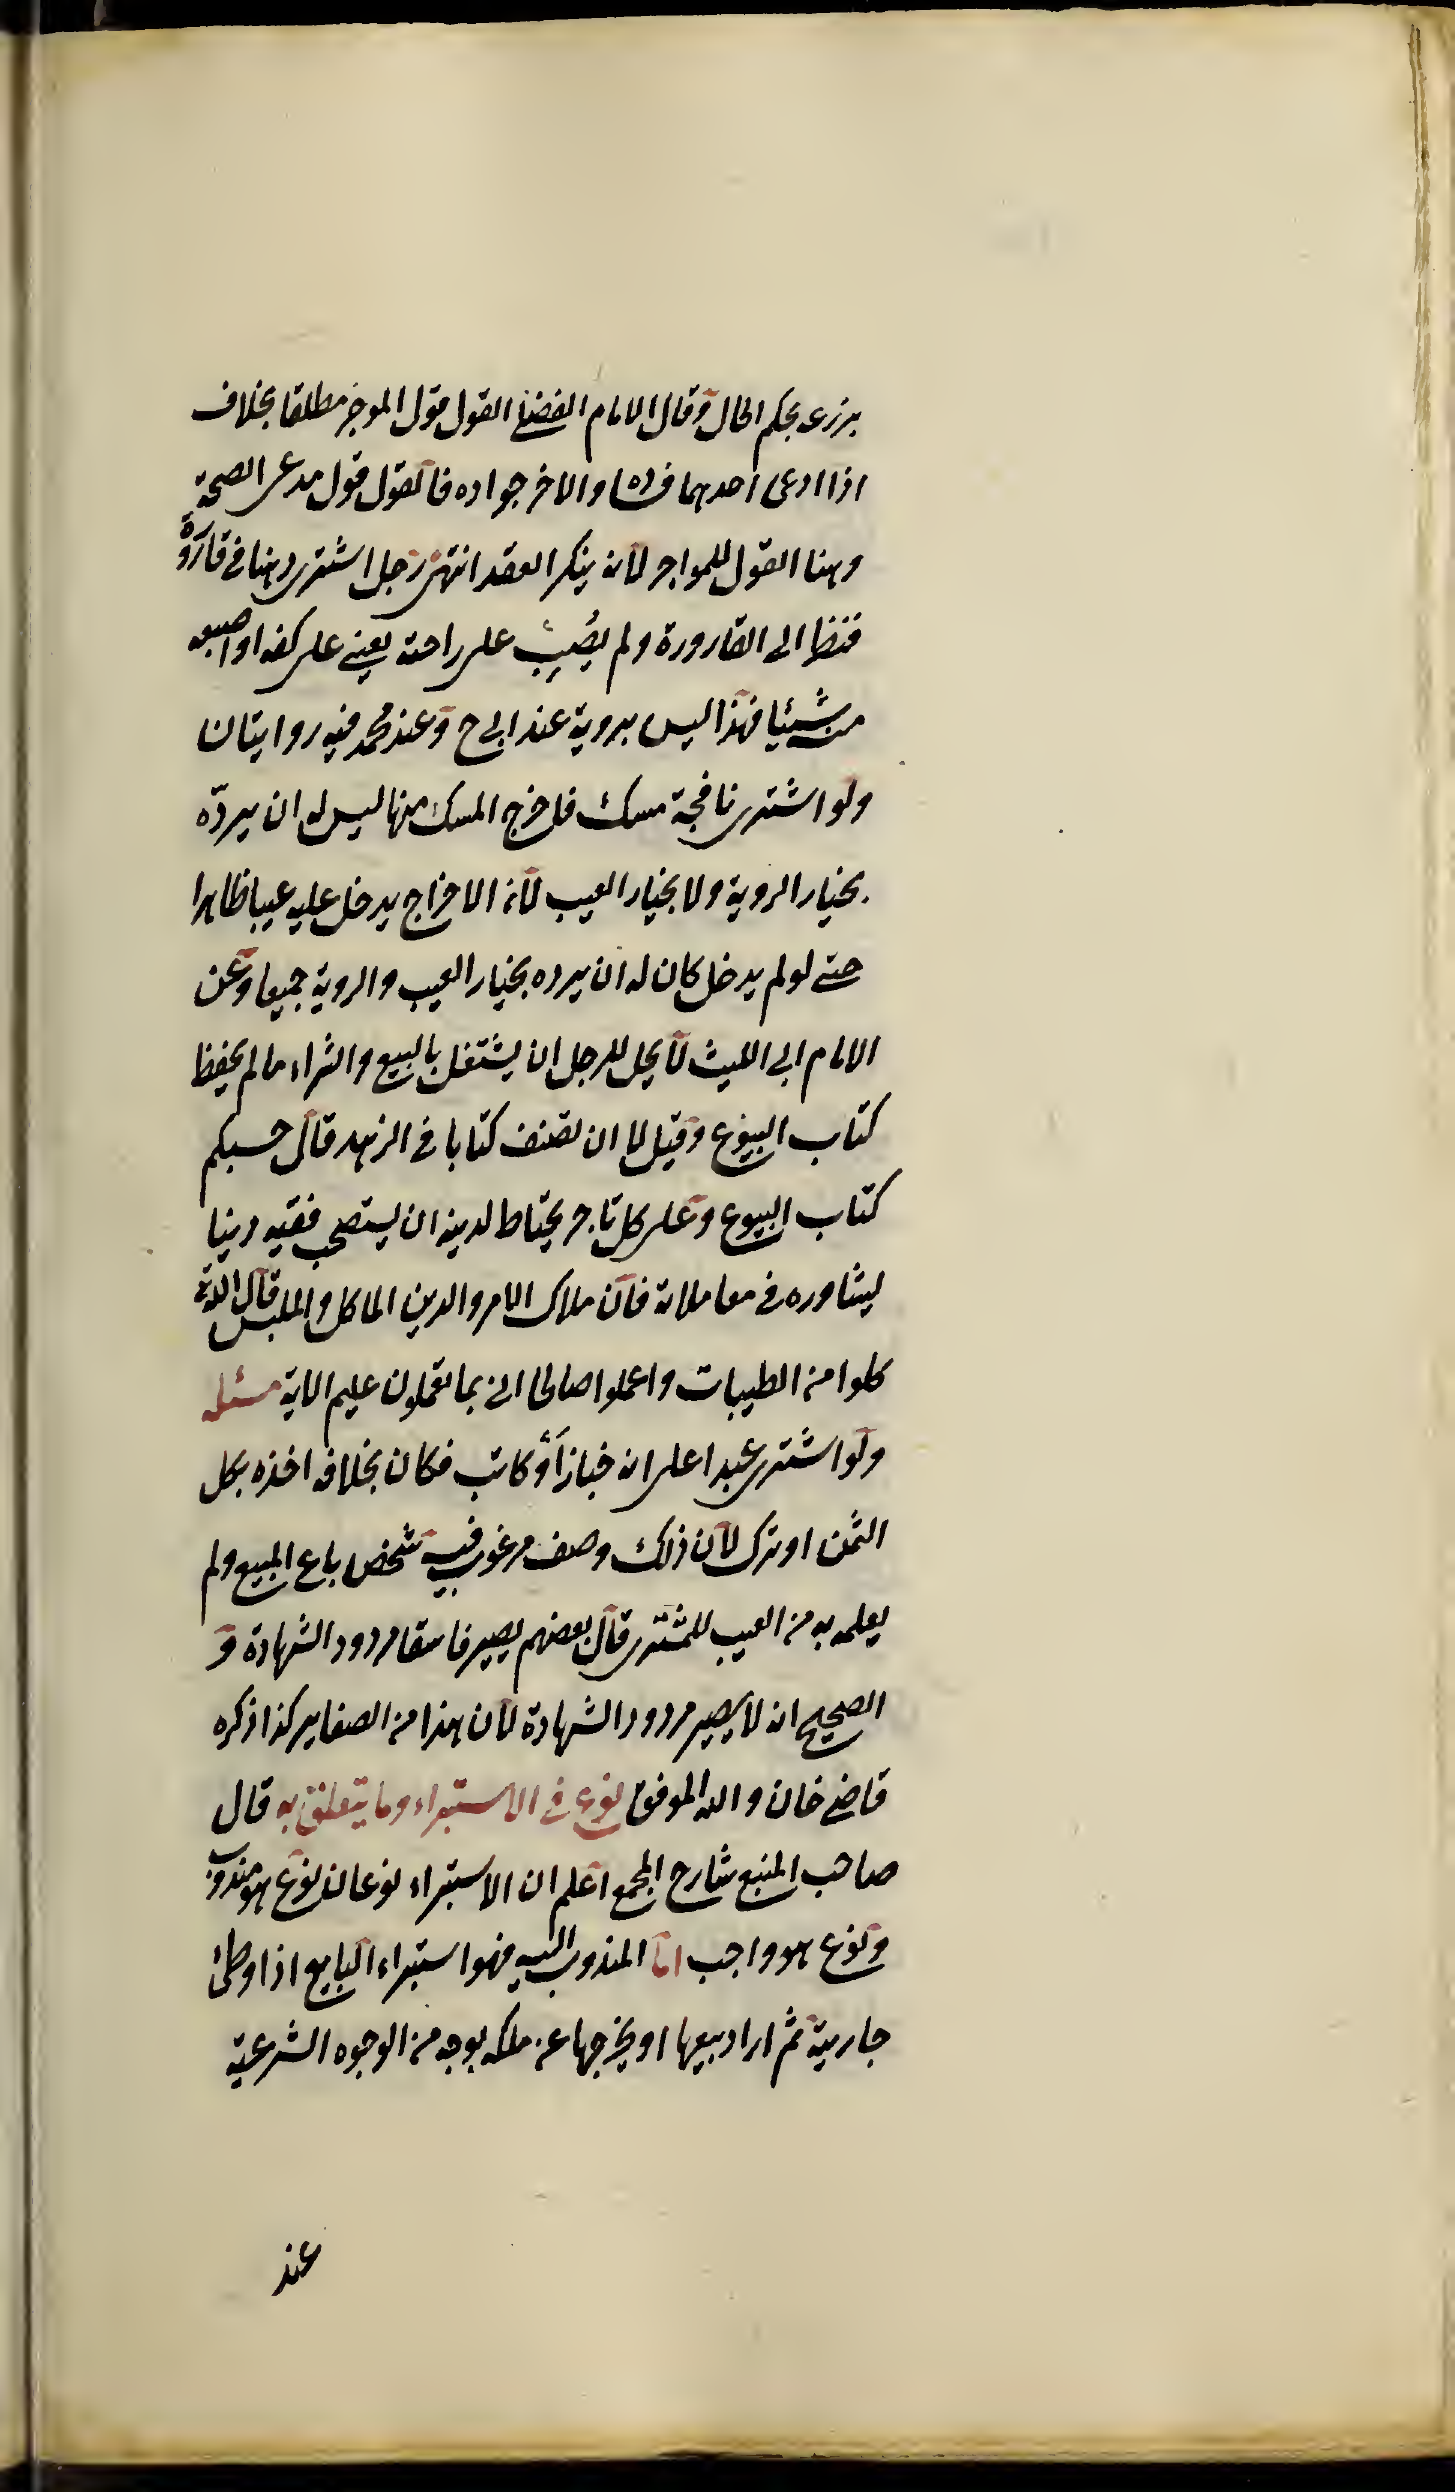 بزرع بحكم الحال وقال الامام الفضلي القول قول الموجر مطلقا بخلاف
اذا ادعى احدهما فساده والاخر جوازه فالقول قول مدعى الصحة
وهنا القول للمواجر لانه ينكر العقد انتهى رجل اشترى دهنا في قارورة
فنظر الى القارورة ولم يصُبّ على راحته يعني على كفه او اصبعه
منه شيئا فهذا ليس بروية عند ابي ح وعند محمد فيه روايتان
ولو اشترى نافجة مسك فاخرج المسك منها ليس له ان يردّه
بخيار الروية ولا بخيار العيب لانه الاخراج يدخل عليه عيبا ظاهرا
حتى لو لم يدخل كان له ان يرده بخيار العيب والروية جميعا وعن
الامام ابي الليث لا يحل للرجل ان يشتغل بالبيع والشراء ما لم يحفظ
كتاب البيوع وقيل لما ان تصنف كتابا في الزهد قال حسبكم
كتاب البيوع وعلى كل تاجر يحتاط لدينه ان يستصحب فقيه دينا
ليشاوره في معاملاته فان ملاك الامر والدين الماكل والملبس قال الله تع
كلوا من الطيبات واعملوا صالحا اني بما تعملون عليم الاية مسئله
ولو اشترى عبدا على انه خبازا أو كاتب فكان بخلافه اخذه بكل
الثمن او ترك لان ذلك وصف مرغوب فيه شخص باع المبيع ولم
يعلمه به من العيب للمشترى قال بعضهم يصير فاسقا مردود الشهادة و
الصحيح انه لا يصير مردود الشهادة لان هذا من الصغاير كذا ذكره
قاضي خان والله الموفق نوع في الاستبراء وما يتعلق به قال
صاحب المنبع شارح المجمع اعلم ان الاستبراء نوعان نوع هو مندوب
ونوع هو واجب اما المندوب اليه فهو استبراء البايع اذا وطئ
جارية ثم اراد بيعها او يخرجها عن ملكه بوجه من الوجوه الشرعية
عند